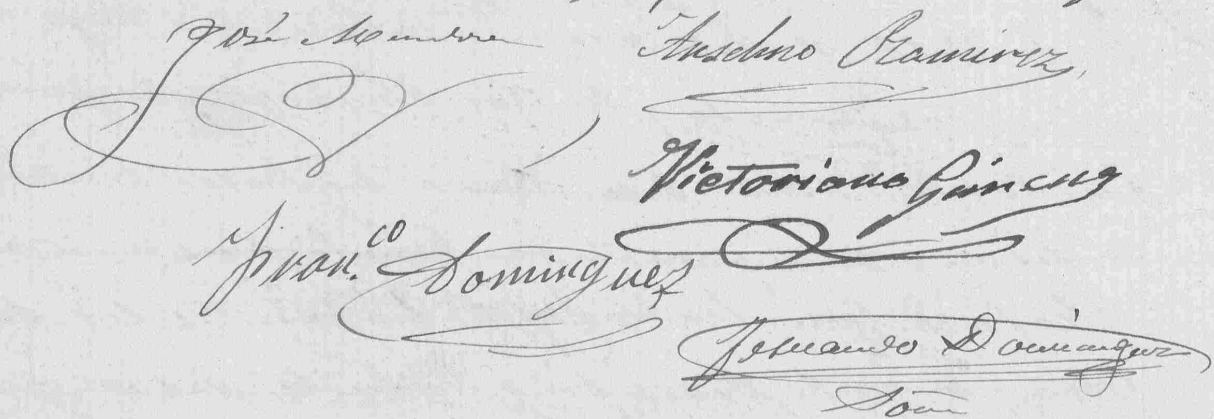 José
Anselmo Ramirez
Victoriano
Fran.co Dominguez
Fernando Dominguez